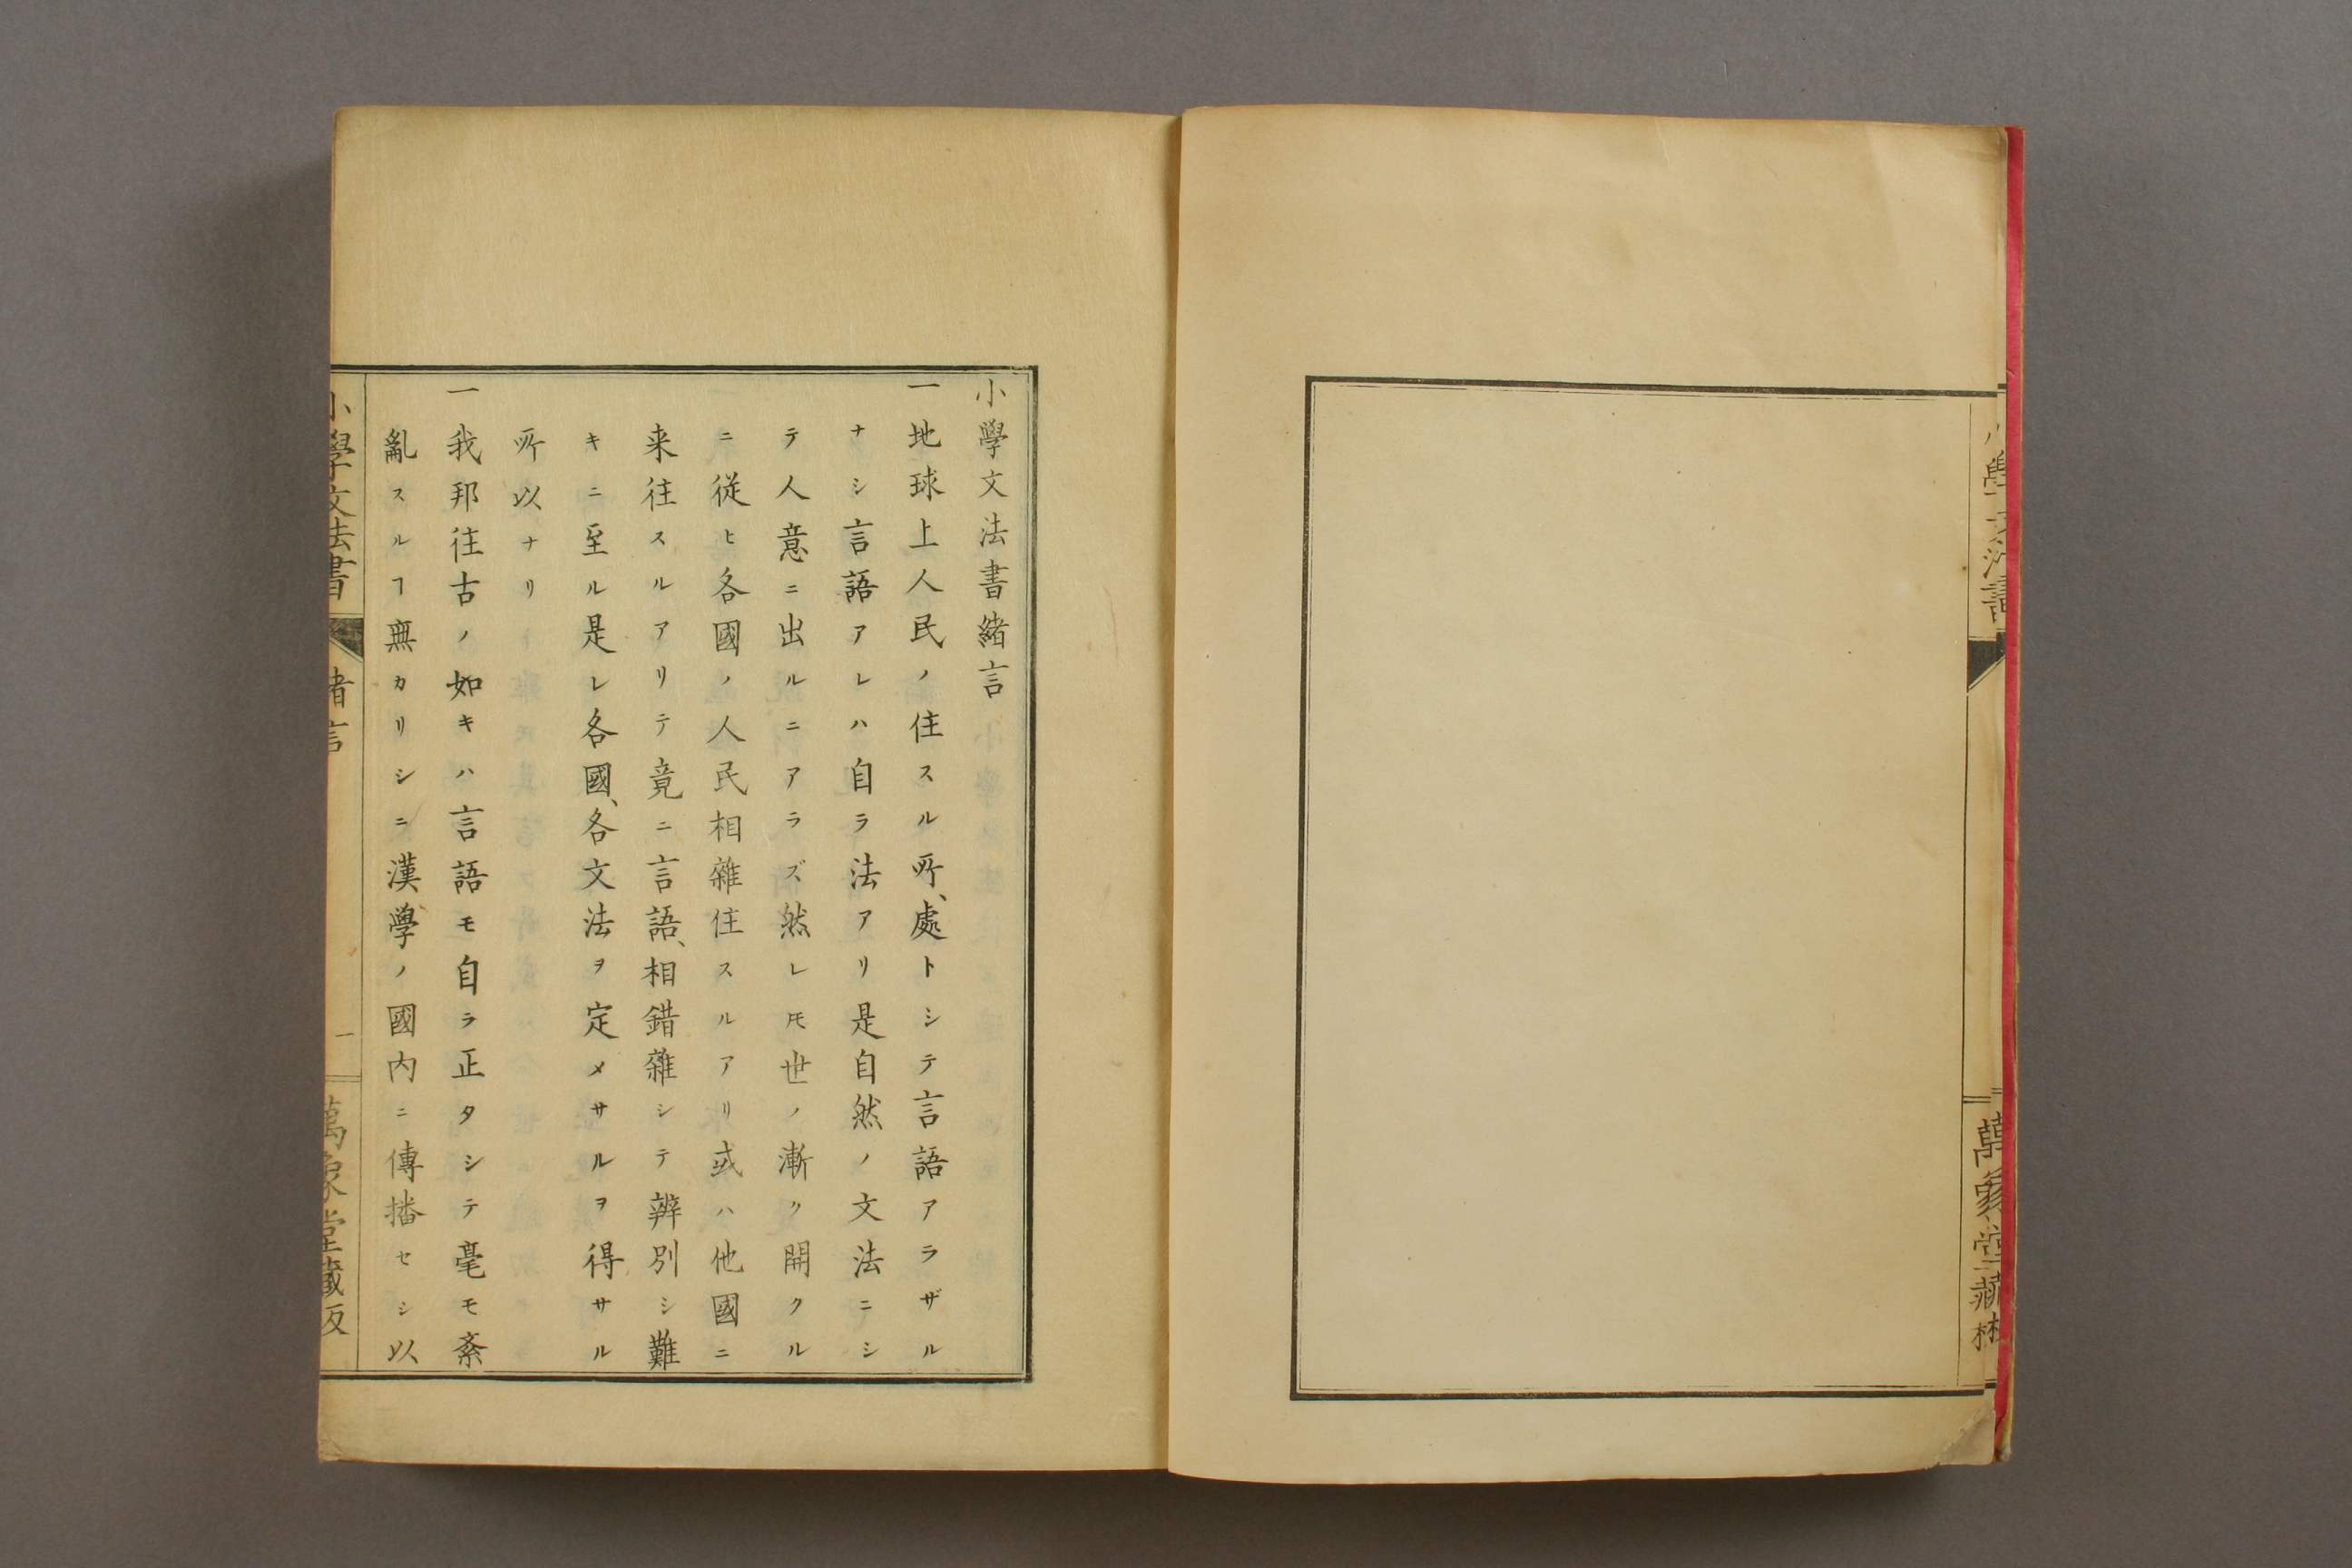 小學文法書
萬象堂藏梓
小學文法書緒言
一地球上人民ノ住スル所、處トシテ言語アラザル
ナシ言語アレハ自ラ法アリ是自然ノ文法ニシ
テ人意ニ出ルニアラズ然レ𪜈世ノ漸ク開クル
ニ従ヒ各國ノ人民相雜住スルアリ或ハ他國ニ
来往スルアリテ竟ニ言語、相錯雜シテ辨別シ難
キニ至ル是レ各國、各文法ヲ定メサルヲ得サル
所以ナリ
一我邦往古ノ如キハ言語モ自ラ正タシテ毫モ紊
亂スルヿ無カリシニ漢學ノ國内ニ傳播セシ以
小學文法書
緒言
一
萬象堂藏版